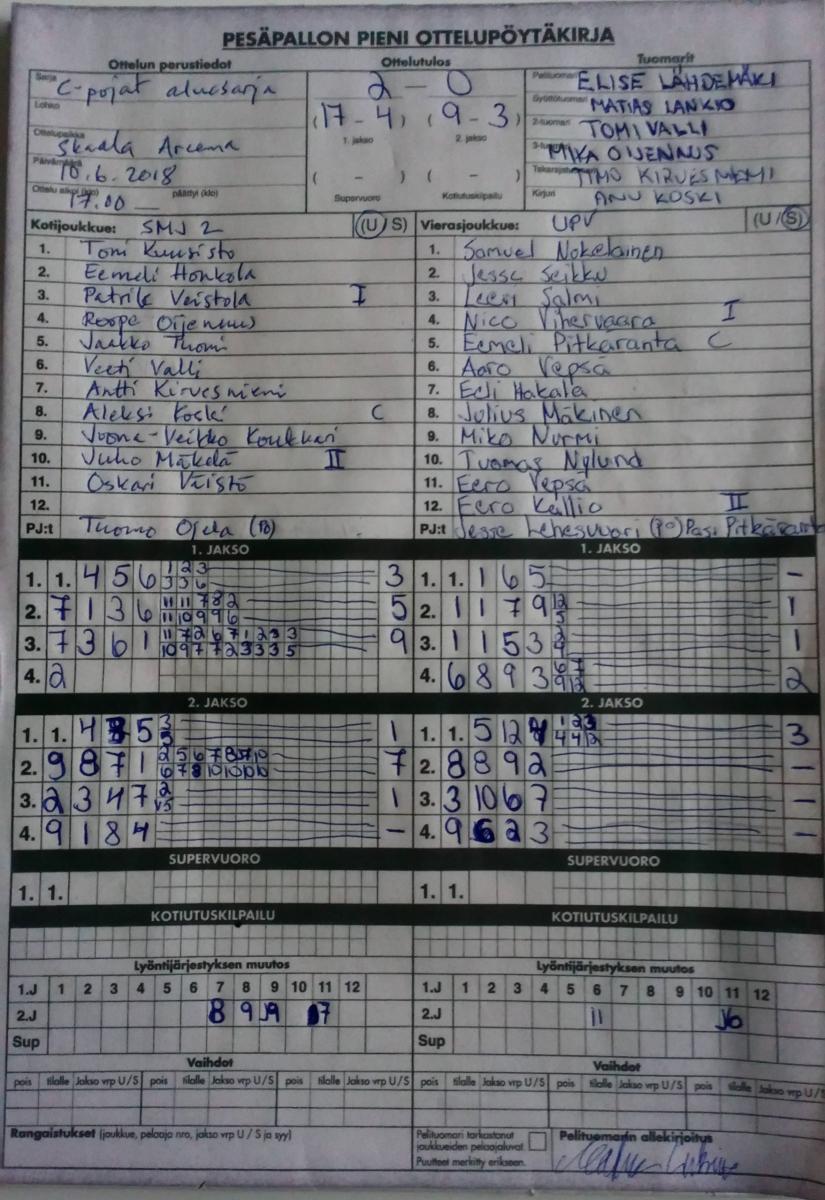 PESÄPALLON PIENI OTTELUPÖYTÄKIRJA
Ottelun perustiedot
Ottelutulos
Tuomarit
Sarja C-pojat aluesarja
Lohko
Ottelupaikka Skaala Areena
Päivämäärä 10.6.2018
Ottelu alkoi (klo) 17.00 päättyi (klo)
2 - 0
(17 - 4) (9 - 3)
1. jakso 2. jakso
( - ) ( - )
Supervuoro Kotiutuskilpailu
Pelituomari ELISE LÄHDEMÄKI
Syöttötuomari MATIAS LANKIO
2-tuomari TOMI VALLI
3-tuomari MIKA OIJENNUS
Takarajatuomari TIMO KIRVESNIEMI
Kirjuri ANU KOSKI
Kotijoukkue: SMJ 2 (U / S)
1. Toni Kuusisto
2. Eemeli Honkola
3. Patrik Veistola I
4. Roope Oijennus
5. Jaakko Thomi
6. Veeti Valli
7. Antti Kirvesniemi
8. Aleksi Koski C
9. Joona-Veikko Koukkari
10. Juho Mäkelä II
11. Oskari Väistö
12.
PJ:t Tuomo Ojala (PÖ)
Vierasjoukkue: UPV (U / S)
1. Samuel Nokelainen
2. Jesse Seikku
3. Leevi Salmi
4. Nico Vihervaara I
5. Eemeli Pitkäranta C
6. Aaro Vepsä
7. Eeli Hakala
8. Julius Mäkinen
9. Miko Nurmi
10. Tuomas Nylund
11. Eero Vepsä
12. Eero Kallio II
PJ:t Jesse Lehesvuori (PÖ) Pasi Pitkäranta
1. JAKSO
1. 1. 4 5 6 1 2 3 3
3 3 6
2. 7 1 3 6 11 11 7 8 2 5
11 10 9 9 6
3. 7 3 6 1 11 7 2 6 7 1 2 3 3 9
10 9 7 7 2 3 3 3 5
4. 2
1. JAKSO
1. 1. 1 6 5 -
2. 1 1 7 9 12 1
5
3. 1 1 5 3 2 1
9
4. 6 8 9 3 6 7 2
9 12
2. JAKSO
1. 1. 4 5 3 1
3
2. 9 8 7 1 2 5 6 7 8 7
6 7 8 10 10 10 10
3. 2 3 4 7 2 1
4. 9 1 8 4 -
2. JAKSO
1. 1. 5 12 1 2 3 3
4 4 12
2. 8 8 9 2 -
3. 3 10 6 7 -
4. 9 6 2 3 -
SUPERVUORO
1. 1.
SUPERVUORO
1. 1.
KOTIUTUSKILPAILU
KOTIUTUSKILPAILU
Lyöntijärjestyksen muutos
1.J 1 2 3 4 5 6 7 8 9 10 11 12
2.J 8 9 7
Sup
Lyöntijärjestyksen muutos
1.J 1 2 3 4 5 6 7 8 9 10 11 12
2.J 11
Sup
Vaihdot
pois tilalle Jakso vrp U / S pois tilalle Jakso vrp U / S pois tilalle Jakso vrp U / S
Vaihdot
pois tilalle Jakso vrp U / S pois tilalle Jakso vrp U / S pois tilalle Jakso vrp U / S
Rangaistukset (joukkue, pelaaja nro, jakso vrp U / S ja syy)
Pelituomari tarkastanut
joukkueiden pelaajaluvat
Puutteet merkitty erikseen.
Pelituomarin allekirjoitus